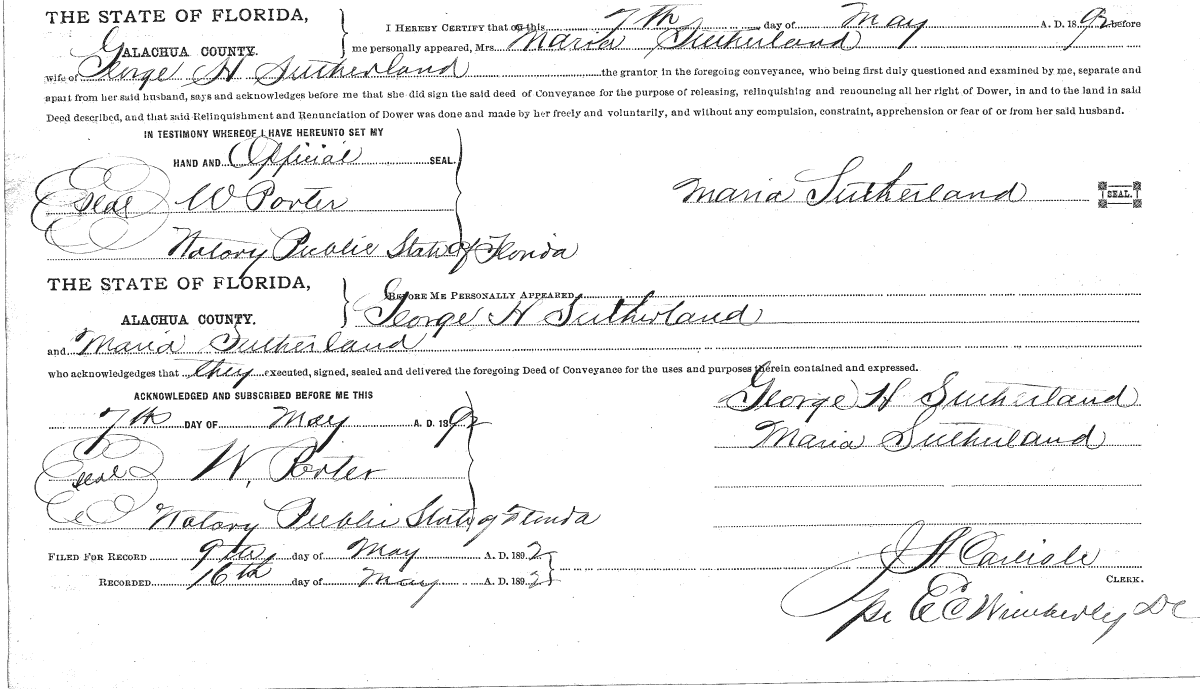 THE STATE OF FLORIDA,
ALACHUA COUNTY.
I HEREBY CERTIFY that on this 7th day of May A. D. 1892 before
me personally appeared, Mrs. Maria Sutherland
wife of George H Sutherland the grantor in the foregoing conveyance, who being first duly questioned and examined by me, separate and
apart from her said husband, says and acknowledges before me that she did sign the said deed of Conveyance for the purpose of releasing, relinquishing and renouncing all her right of Dower, in and to the land in said
Deed described, and that said Relinquishment and Renunciation of Dower was done and made by her freely and voluntarily, and without any compulsion, constraint, apprehension or fear of or from her said husband.
IN TESTIMONY WHEREOF I HAVE HEREUNTO SET MY
HAND AND Official SEAL.
Seal W Porter
Maria Sutherland SEAL.
Notary Public State of Florida
THE STATE OF FLORIDA,
ALACHUA COUNTY.
BEFORE ME PERSONALLY APPEARED
George H Sutherland
and Maria Sutherland
who acknowledgedges that they executed, signed, sealed and delivered the foregoing Deed of Conveyance for the uses and purposes therein contained and expressed.
ACKNOWLEDGED AND SUBSCRIBED BEFORE ME THIS
7th DAY OF May A. D. 1892
George H Sutherland
Maria Sutherland
Seal W. Porter
Notary Public State of Florida
FILED FOR RECORD 9th day of May A. D. 1892
RECORDED 16th day of May A. D. 1892
J H Carlisle
CLERK.
Per E C Wimberley DC